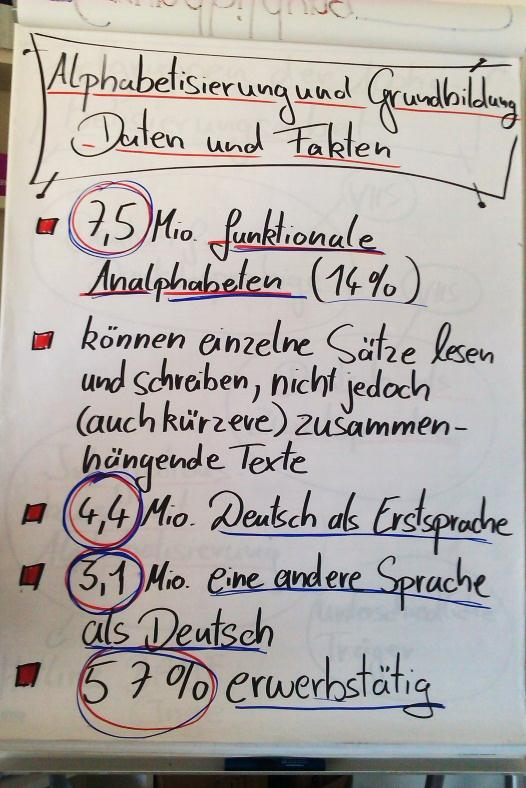 Alphabetisierung und Grundbildung
- Daten und Fakten
7,5 Mio. funktionale
Analphabeten (14%)
können einzelne Sätze lesen
und schreiben, nicht jedoch
(auch kürzere) zusammen-
hängende Texte
4,4 Mio. Deutsch als Erstsprache
3,1 Mio. eine andere Sprache
als Deutsch
57% erwerbstätig